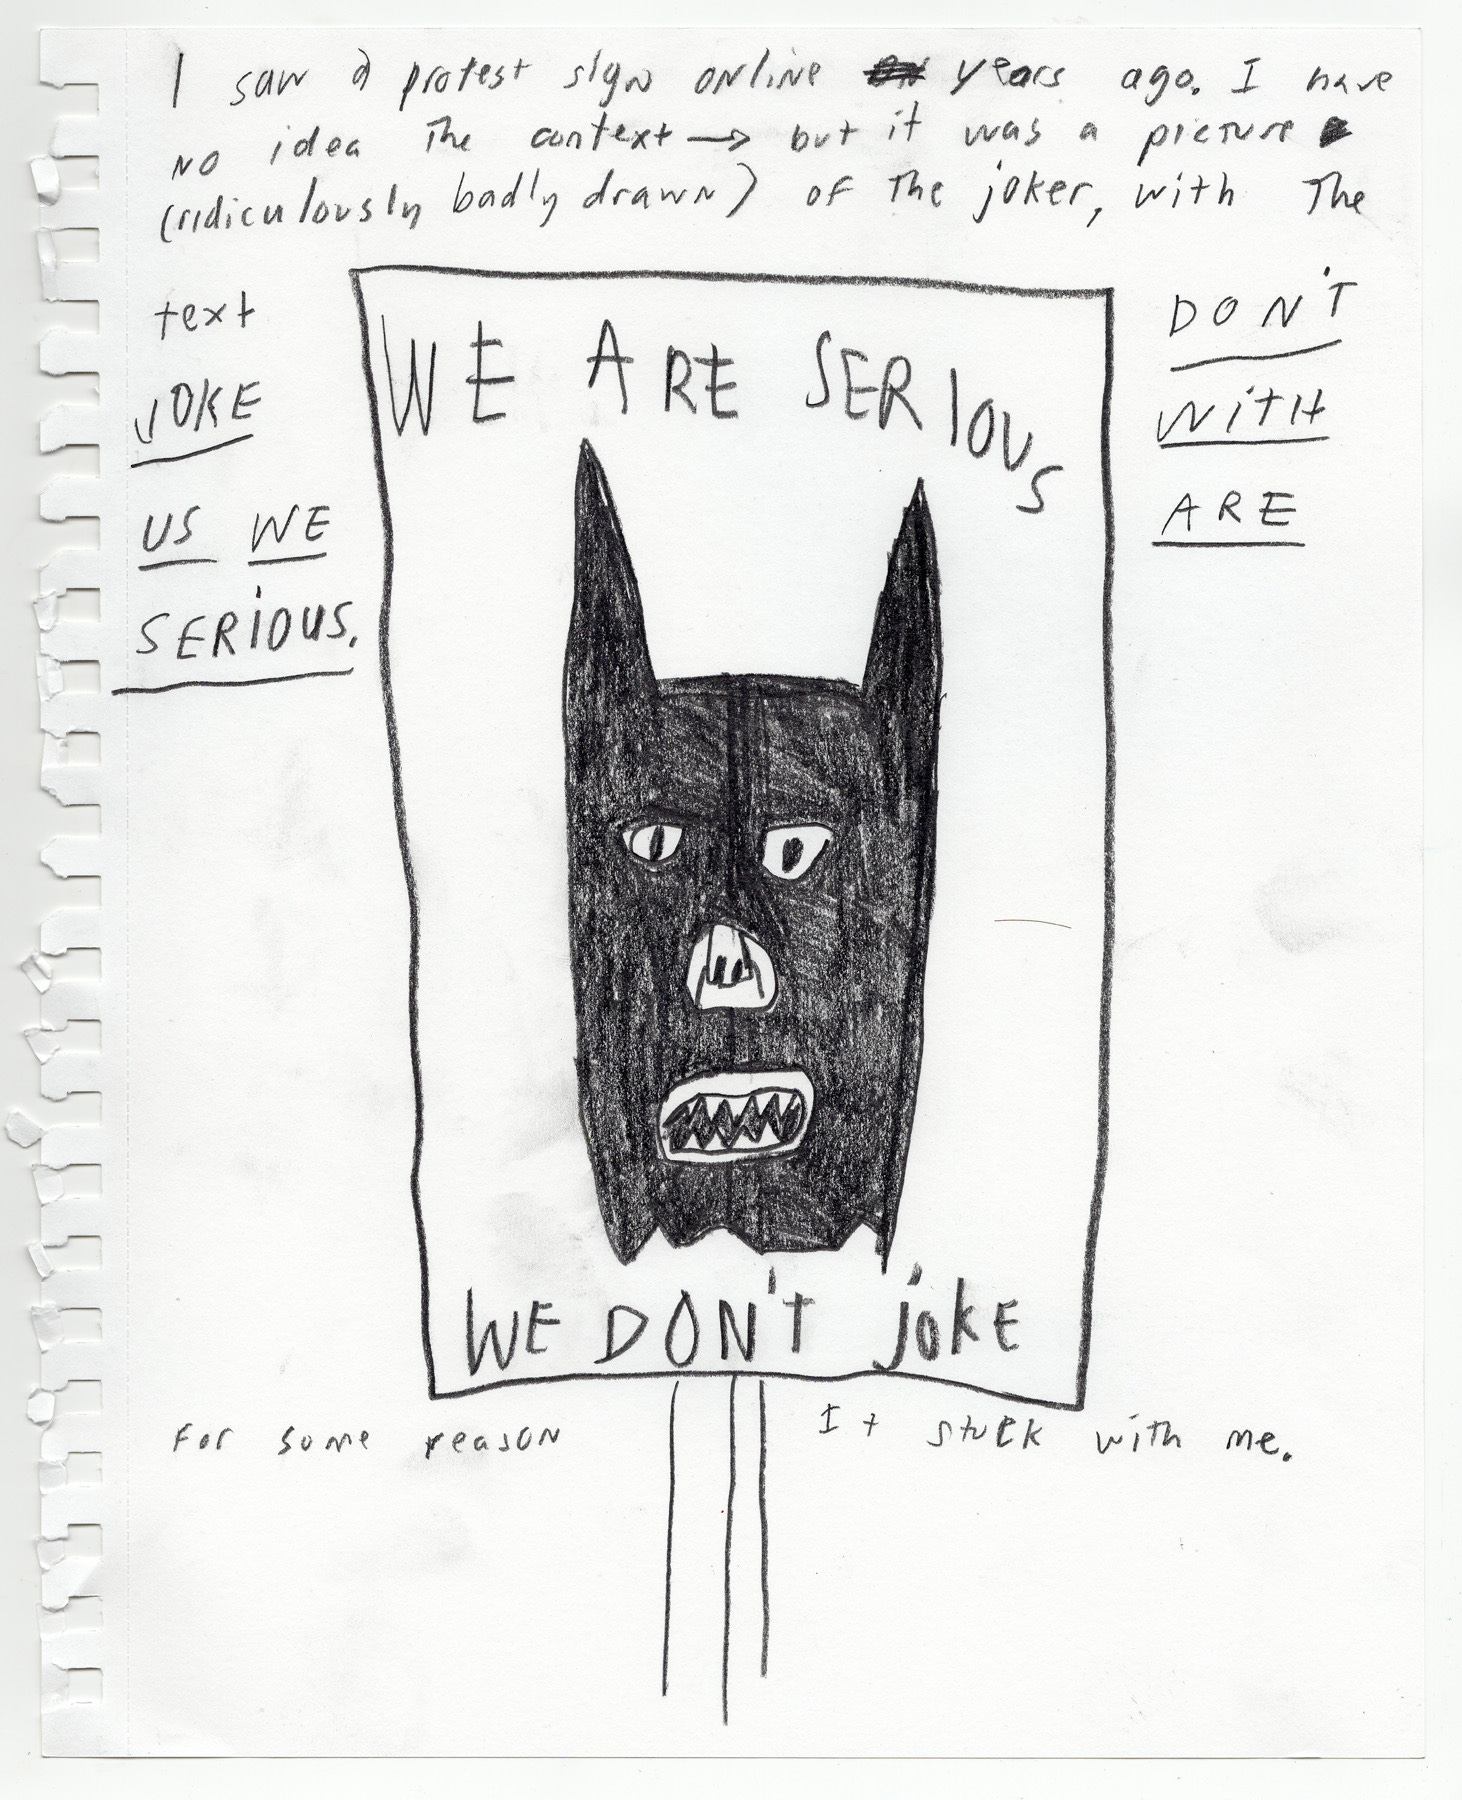 I saw a protest sign online years ago. I have
no idea the context → but it was a picture
(ridiculously badly drawn) of the joker, with the
text DON'T
JOKE WITH
US WE ARE
SERIOUS.
WE ARE SERIOUS
WE DON'T JOKE
For some reason It stuck with me.